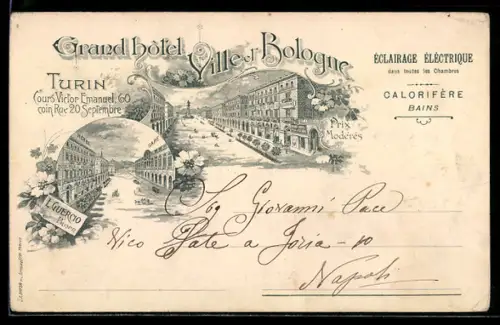 Grand hôtel Ville et Bologne
TURIN
Cours Victor Emanuel, 60
coin Rue 20 Septembre
ÉCLAIRAGE ÉLECTRIQUE
dans toutes les Chambres
CALORIFÈRE
BAINS
Prix
Modérés
L. GUERCIO
Propre
Giovanni Pace
Vico Pate a Foria - 10
Napoli